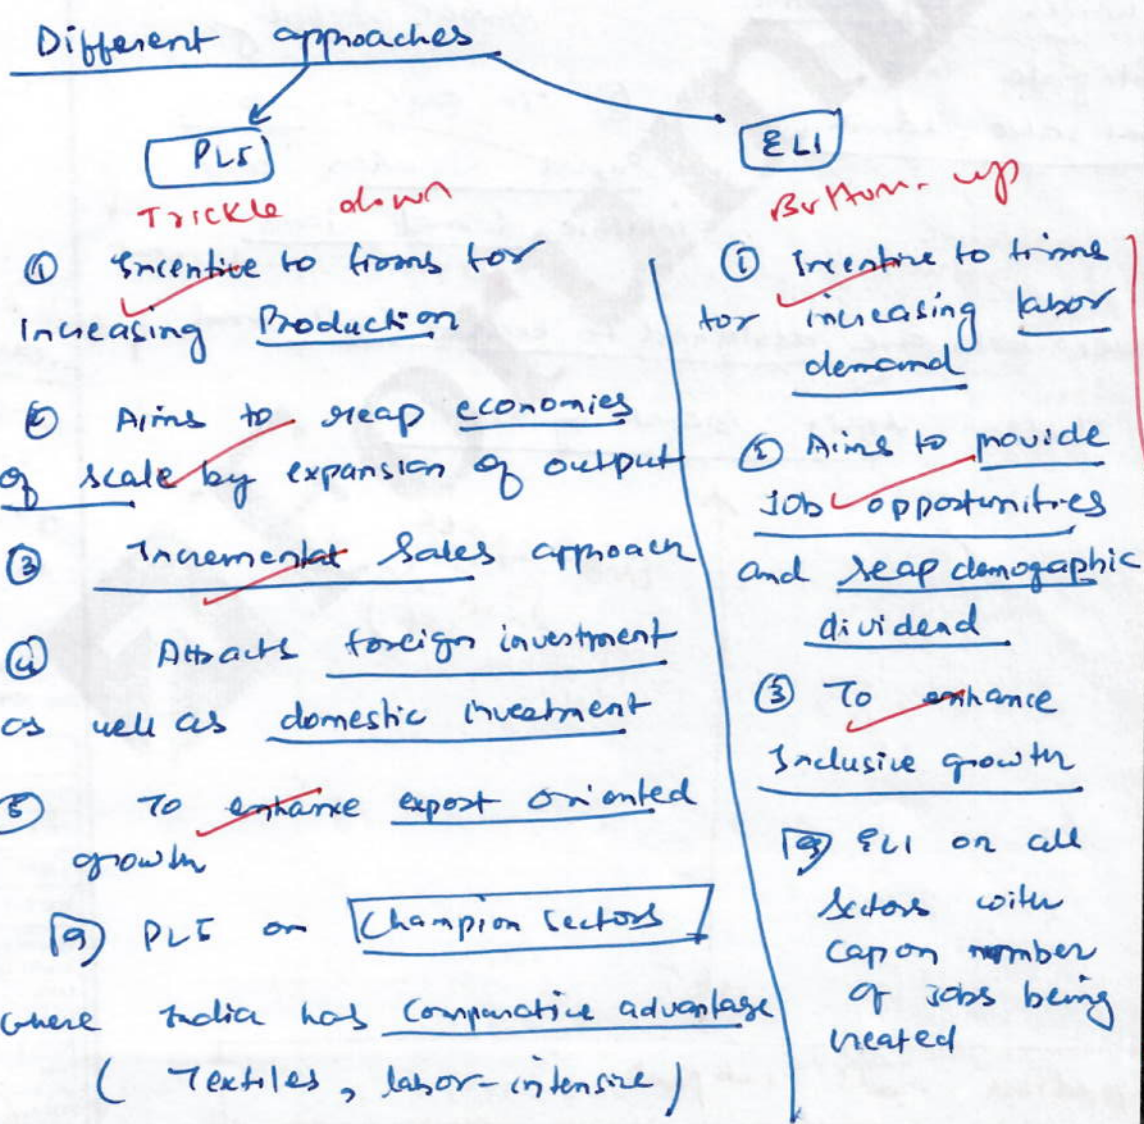 Different approaches
PLI
Trickle down
① Incentive to firms for
increasing Production
② Aims to reap economies
of scale by expansion of output
③ Incremental Sales approach
④ Attracts foreign investment
as well as domestic investment
⑤ To enhance export oriented
growth
eg PLI on Champion Sectors
where India has comparative advantage
( Textiles, labor-intensive )
ELI
Bottom-up
① Incentive to firms
for increasing labor
demand
② Aims to provide
Job opportunities
and reap demographic
dividend
③ To enhance
Inclusive growth
eg ELI on all
Sectors with
cap on number
of jobs being
created